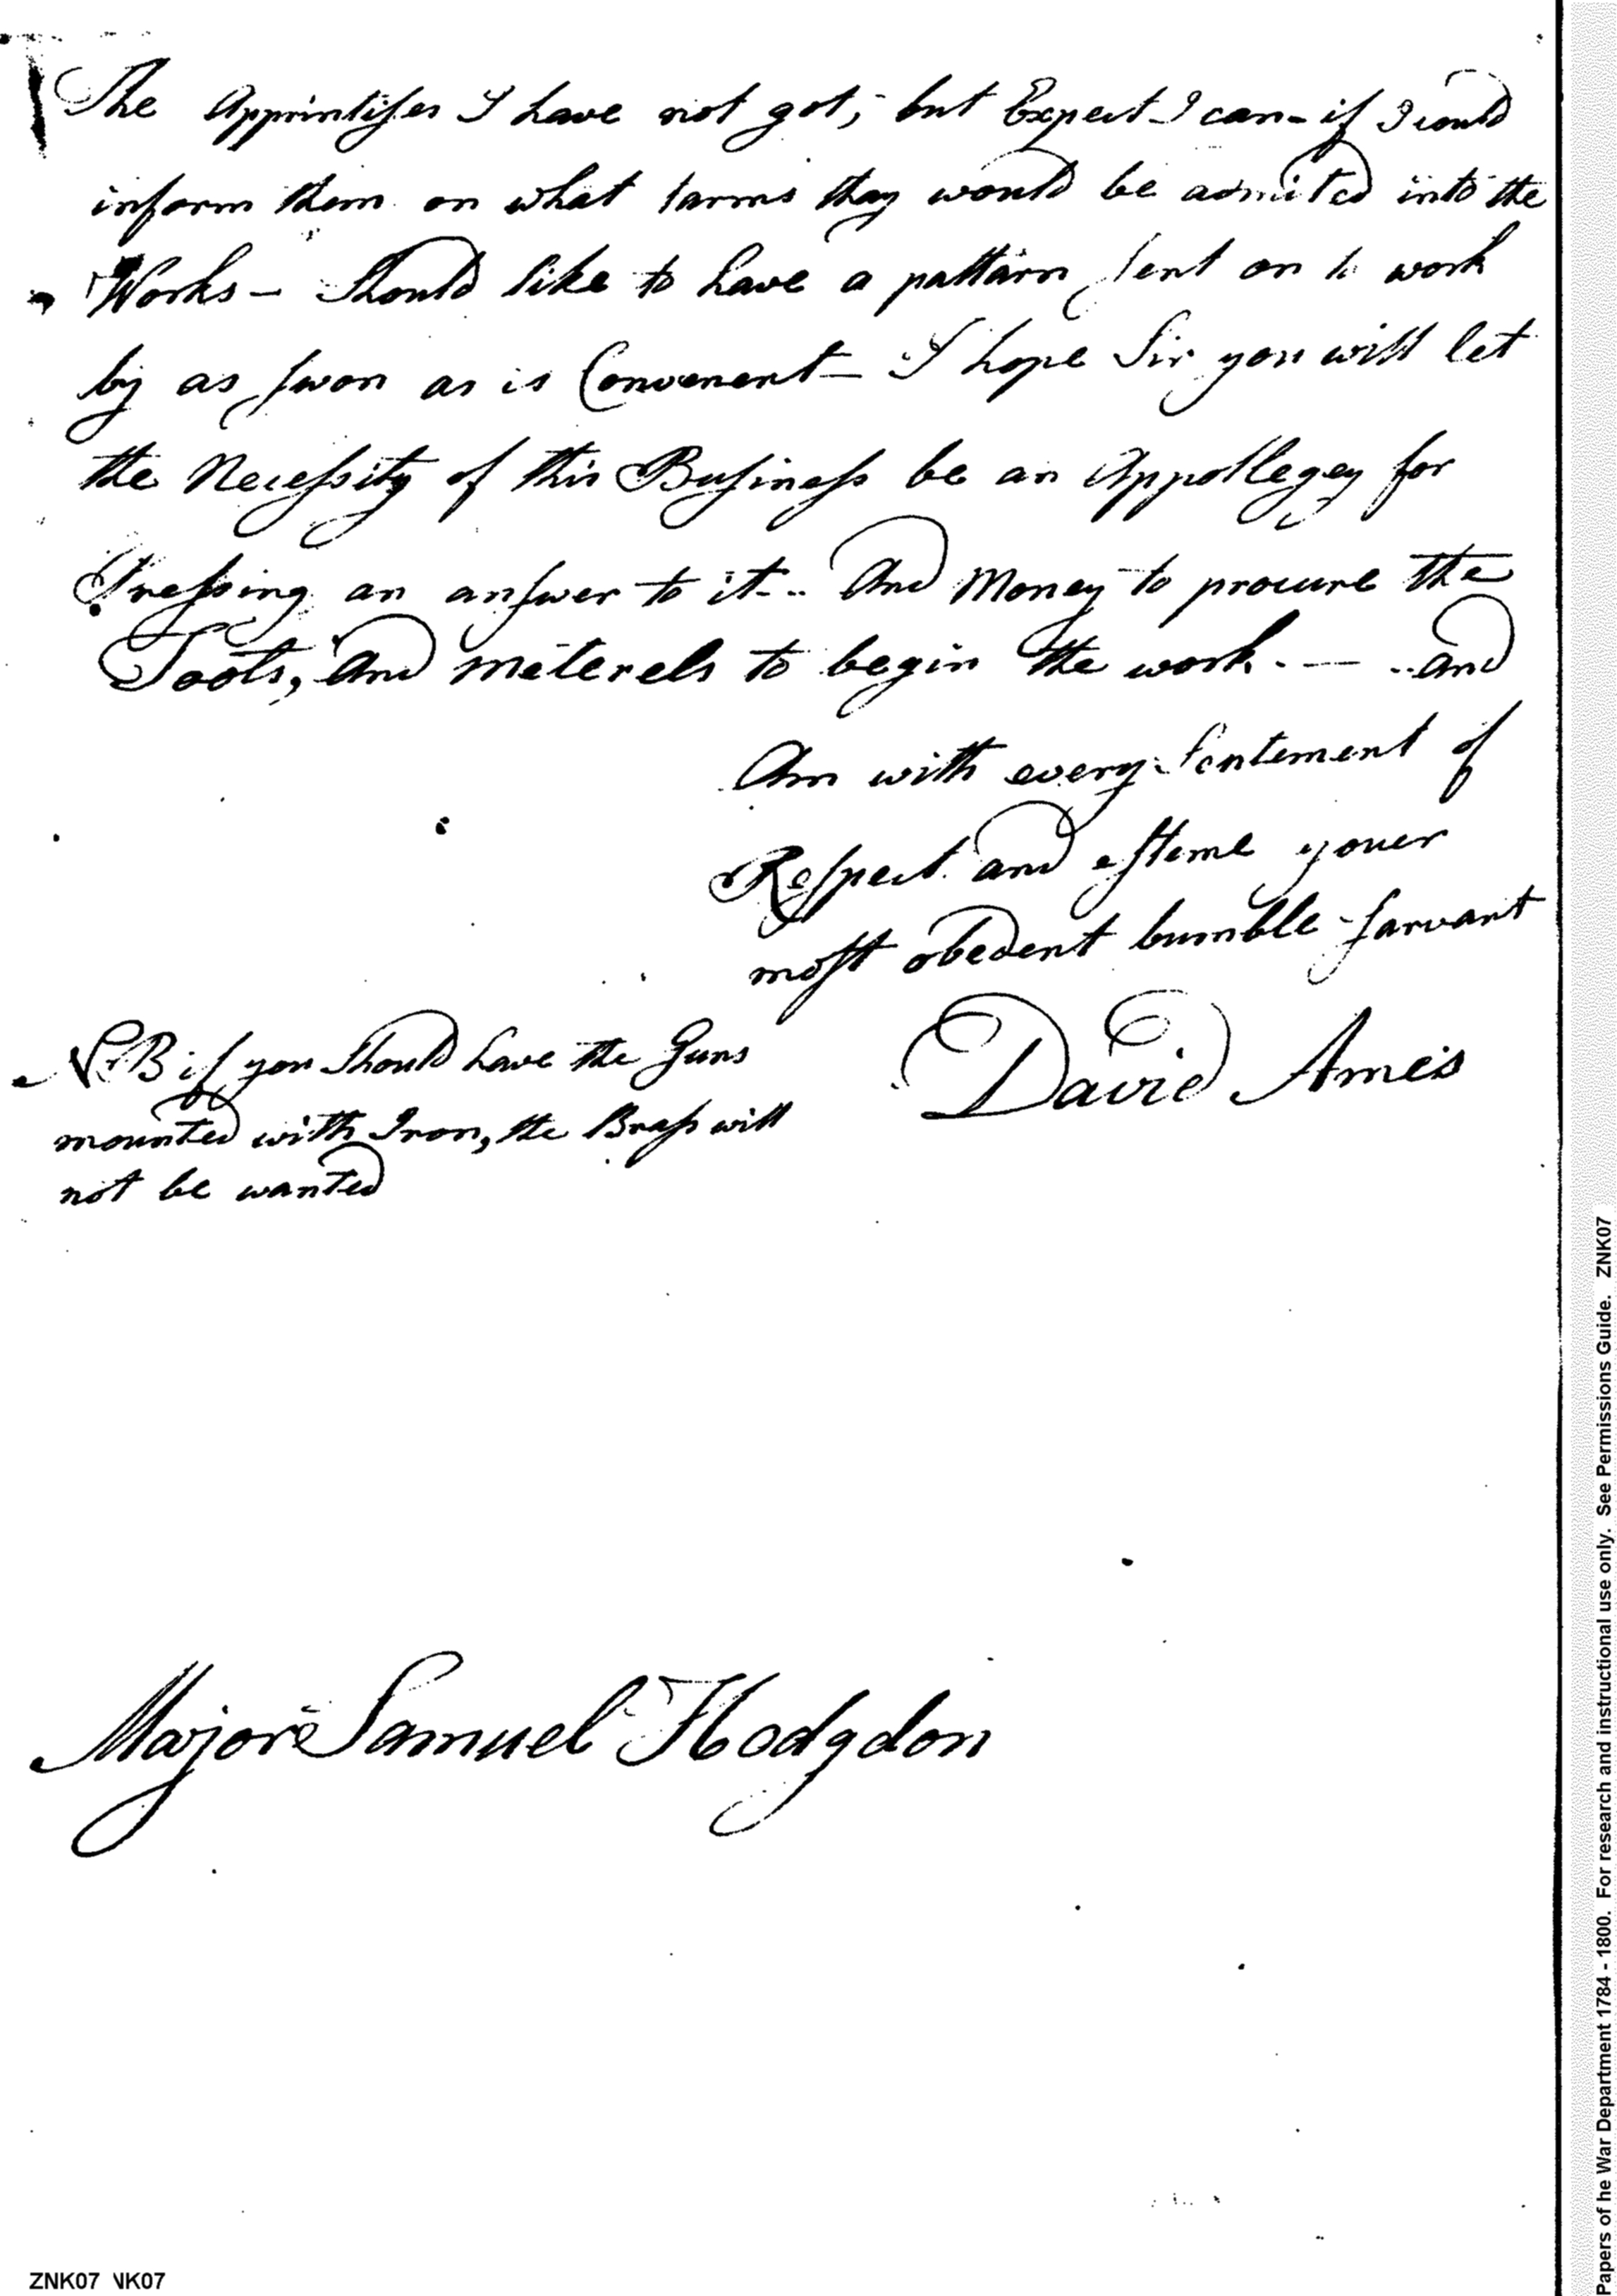 The Apprintises I have not got, but Expect I can - if I could
inform them on what tarms thay would be admited into the
Works - Should like to have a pattarn sent on to work
by as swon as is Convenent - I hope Sir you will let
the Necessity of this Business be an Appollegey for
Pressing an answer to it - And Money to procure the
Tools, and meterels to begin the work. - and
Am with every Sentement of
Respect and esteme youer
most obedent humble sarvant
David Ames
NB if you Should have the Guns
mounted with Iron, the Brass will
not be wanted
Major Samuel Hodgdon
ZNK07 VK07
Papers of he War Department 1784 - 1800. For research and instructional use only. See Permissions Guide. ZNK07